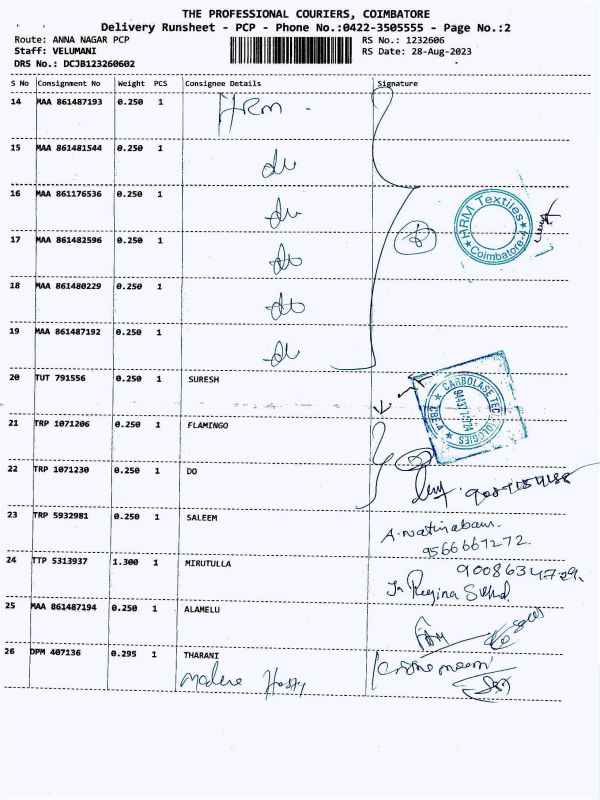 THE PROFESSIONAL COURIERS, COIMBATORE
Delivery Runsheet - PCP - Phone No.:0422-3505555 - Page No.:2
Route: ANNA NAGAR PCP RS No.: 1232606
Staff: VELUMANI RS Date: 28-Aug-2023
DRS No.: DCJB123260602
S No Consignment No Weight PCS Consignee Details Signature
14 MAA 861487193 0.250 1 HRM
15 MAA 861481544 0.250 1 do
16 MAA 861176536 0.250 1 do
HRM Textiles
Coimbatore-4
17 MAA 861482596 0.250 1 do
18 MAA 861480229 0.250 1 do
19 MAA 861487192 0.250 1 do
20 TUT 791556 0.250 1 SURESH
CARBOLASE TECHNOLOGIES
21 TRP 1071206 0.250 1 FLAMINGO
22 TRP 1071230 0.250 1 DO
23 TRP 5932981 0.250 1 SALEEM
9566667272
24 TTP 5313937 1.300 1 MIRUTULLA
9008634729
Regina
25 MAA 861487194 0.250 1 ALAMELU
26 DPM 407136 0.295 1 THARANI